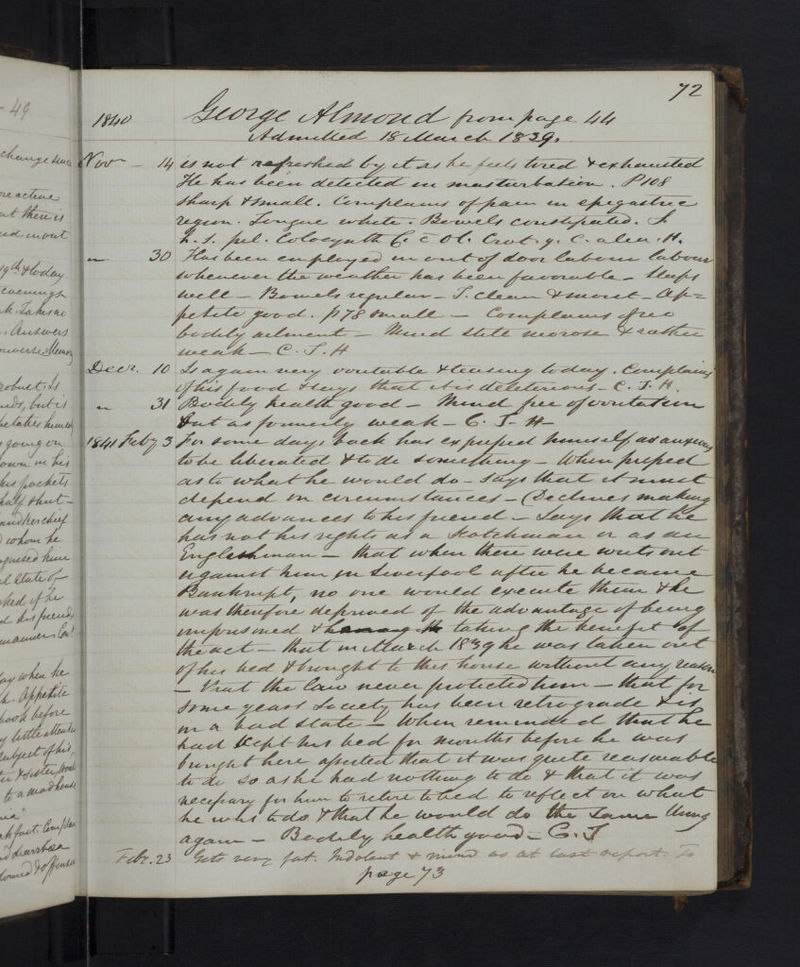 - 49
change since
more active
at there is
and in out
19th & today
evenings
Takes no
. Answers
converse. Memory
robust. Is
but is
he takes
going on
own in his
his pockets
half shut -
handkerchief
whom he
recognised him
state of
asked if he
his friends
manner
day when he
Appetite
book before
little attention
subject of his
& sister
to a madhouse
diarrhoea
72
1840 George Almond from page 44
Admitted 18 March 1839.
Novr - 14 is not refreshed by it as he feels tired & exhausted
He has been detected in masturbation. P108
sharp & small. Complains of pain in epigastric
region. Tongue white. Bowels constipated.
h. s. pil. Colocynth C. c Ol. Crot. g. C. alia. H.
" 30 Has been employed in out of door labour labour
whenever the weather has been favorable - Sleeps
well - Bowels regular - T. clean & moist - Ap=
petite good. P78 small - Complains of no
bodily ailment - Mind still morose & rather
weak - C. T. H
Decr. 10 Is again very irritable & teasing today. Complains
of his food & says that it is deleterious - C. T. H.
" 31 Bodily health good - Mind free of irritation
but as formerly weak - C. T. H -
1841 Feby 3 For some days back has expressed himself as anxious
to be liberated & to do something - When pressed
as to what he would do - says that it must
depend on circumstances - (Declines making
any advances to his friend - Says that he
has not his rights as a Scotchman or as an
Englishman - that when there were writs out
against him in Liverpool after he became
Bankrupt, no one would execute them & he
was therefore deprived of the advantage of being
imprisoned & taking the benefit of
the act - that in March 1839 he was taken out
of his bed & brought to this house without any reason
- that the law never protected him - that for
some years Society has been retrograde & is
in a bad state - When reminded that he
had kept his bed for months before he was
brought here asserted that it was quite reasonable
to do so as he had nothing to do & that it was
necessary for him to retire to bed to reflect on what
he was to do & that he would do the same thing
again - Bodily health good - C. T
Febr. 23 Gets very fat. Indolent & mind as at last report. To
page 73